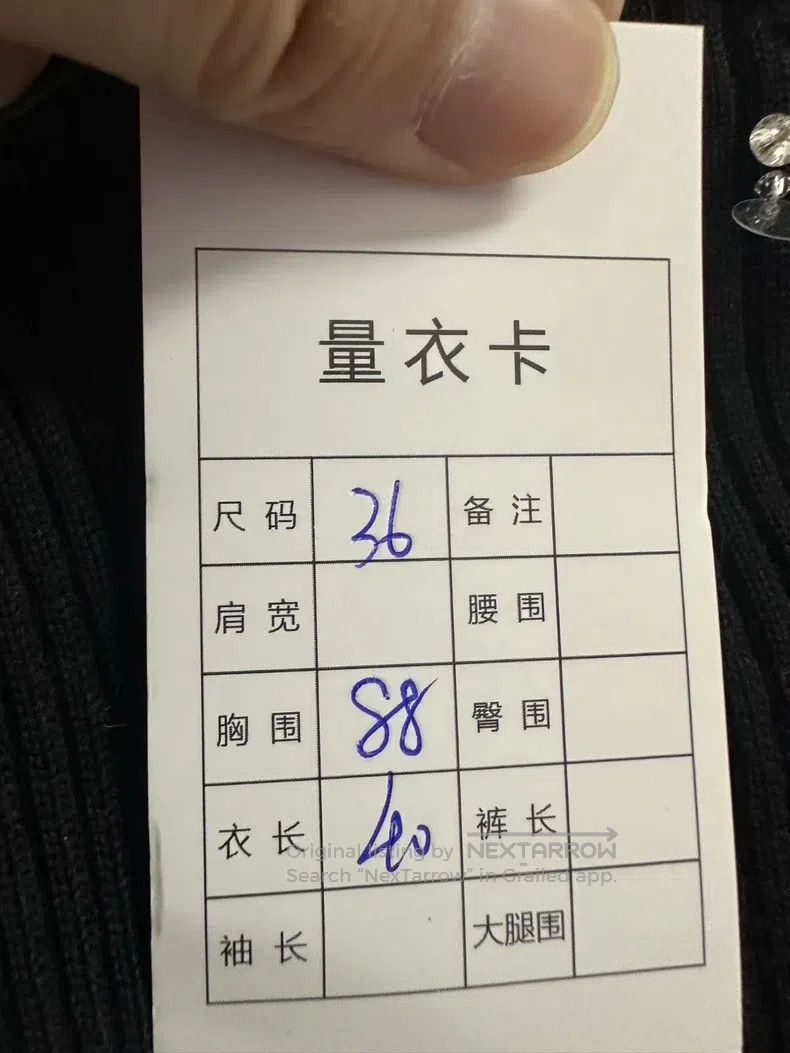 量衣卡
尺码 36 备注
肩宽 腰围
胸围 88 臀围
衣长 40 裤长
Original listing by NEXTARROW
Search “NexTarrow” in Grailed app.
袖长 大腿围